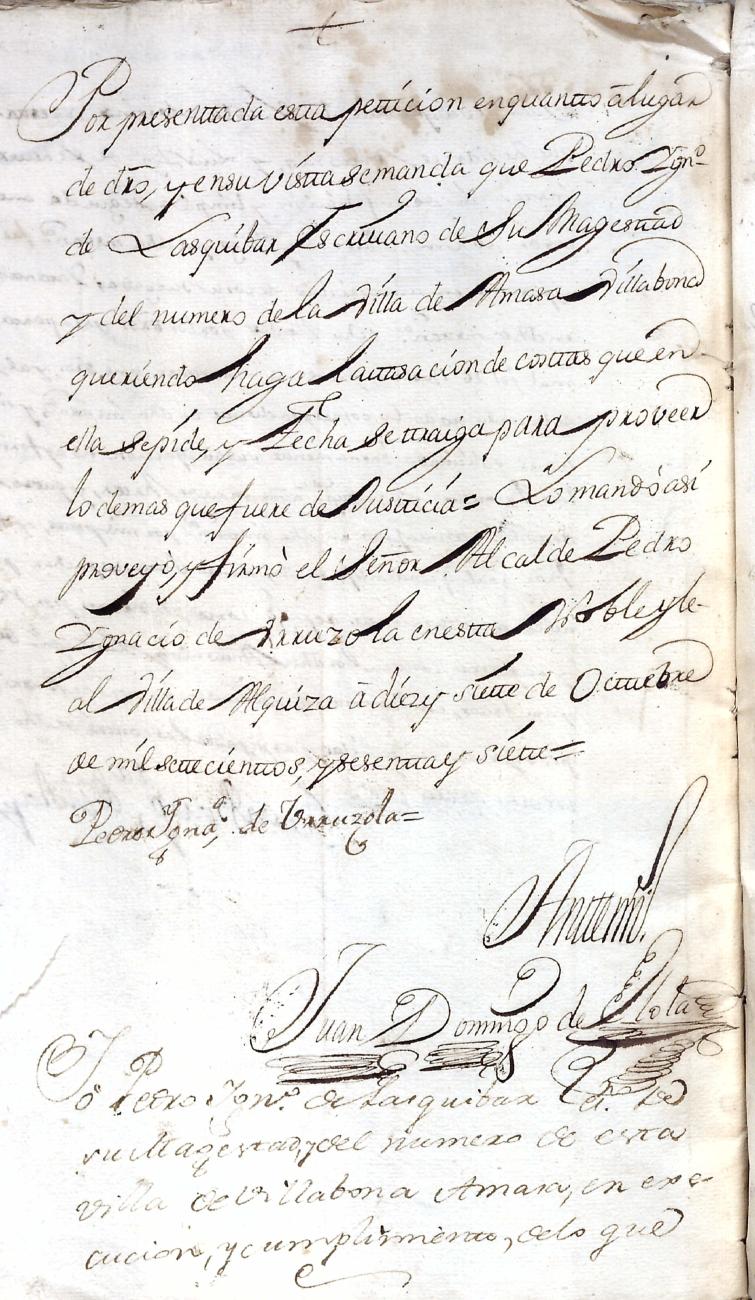 Por presenttada estta petticion enquantto â lugar
de dró, y en su vistta se manda que Pedro Ygn.º
de Lasquibar Escriuano de Su Magesttad
y del numero de la Villa de Amasa Villabona
queriendo haga la ttasacion de costtas que en
ella se pide, y Fecha se ttraiga para proveer
lo demas que fuere de Justticia= Lo mandò asi
proveyò, y firmò el Señor Alcalde Pedro
Ygnacio de Urruzola en estta Noble y le-
al Villa de Alquiza â diez y siette de Octtubre
de mil settecienttos, y sesentta y siette=
Pedro Ygnaº. de Urruzola=
Antte mi
Juan Domingo de
Yo Pedro Ygnº. de Lasquibar de
su Magestad, y del numero de esta
villa de Villabona Amasa, en exe-
cucion, y cumplimiento, de lo que